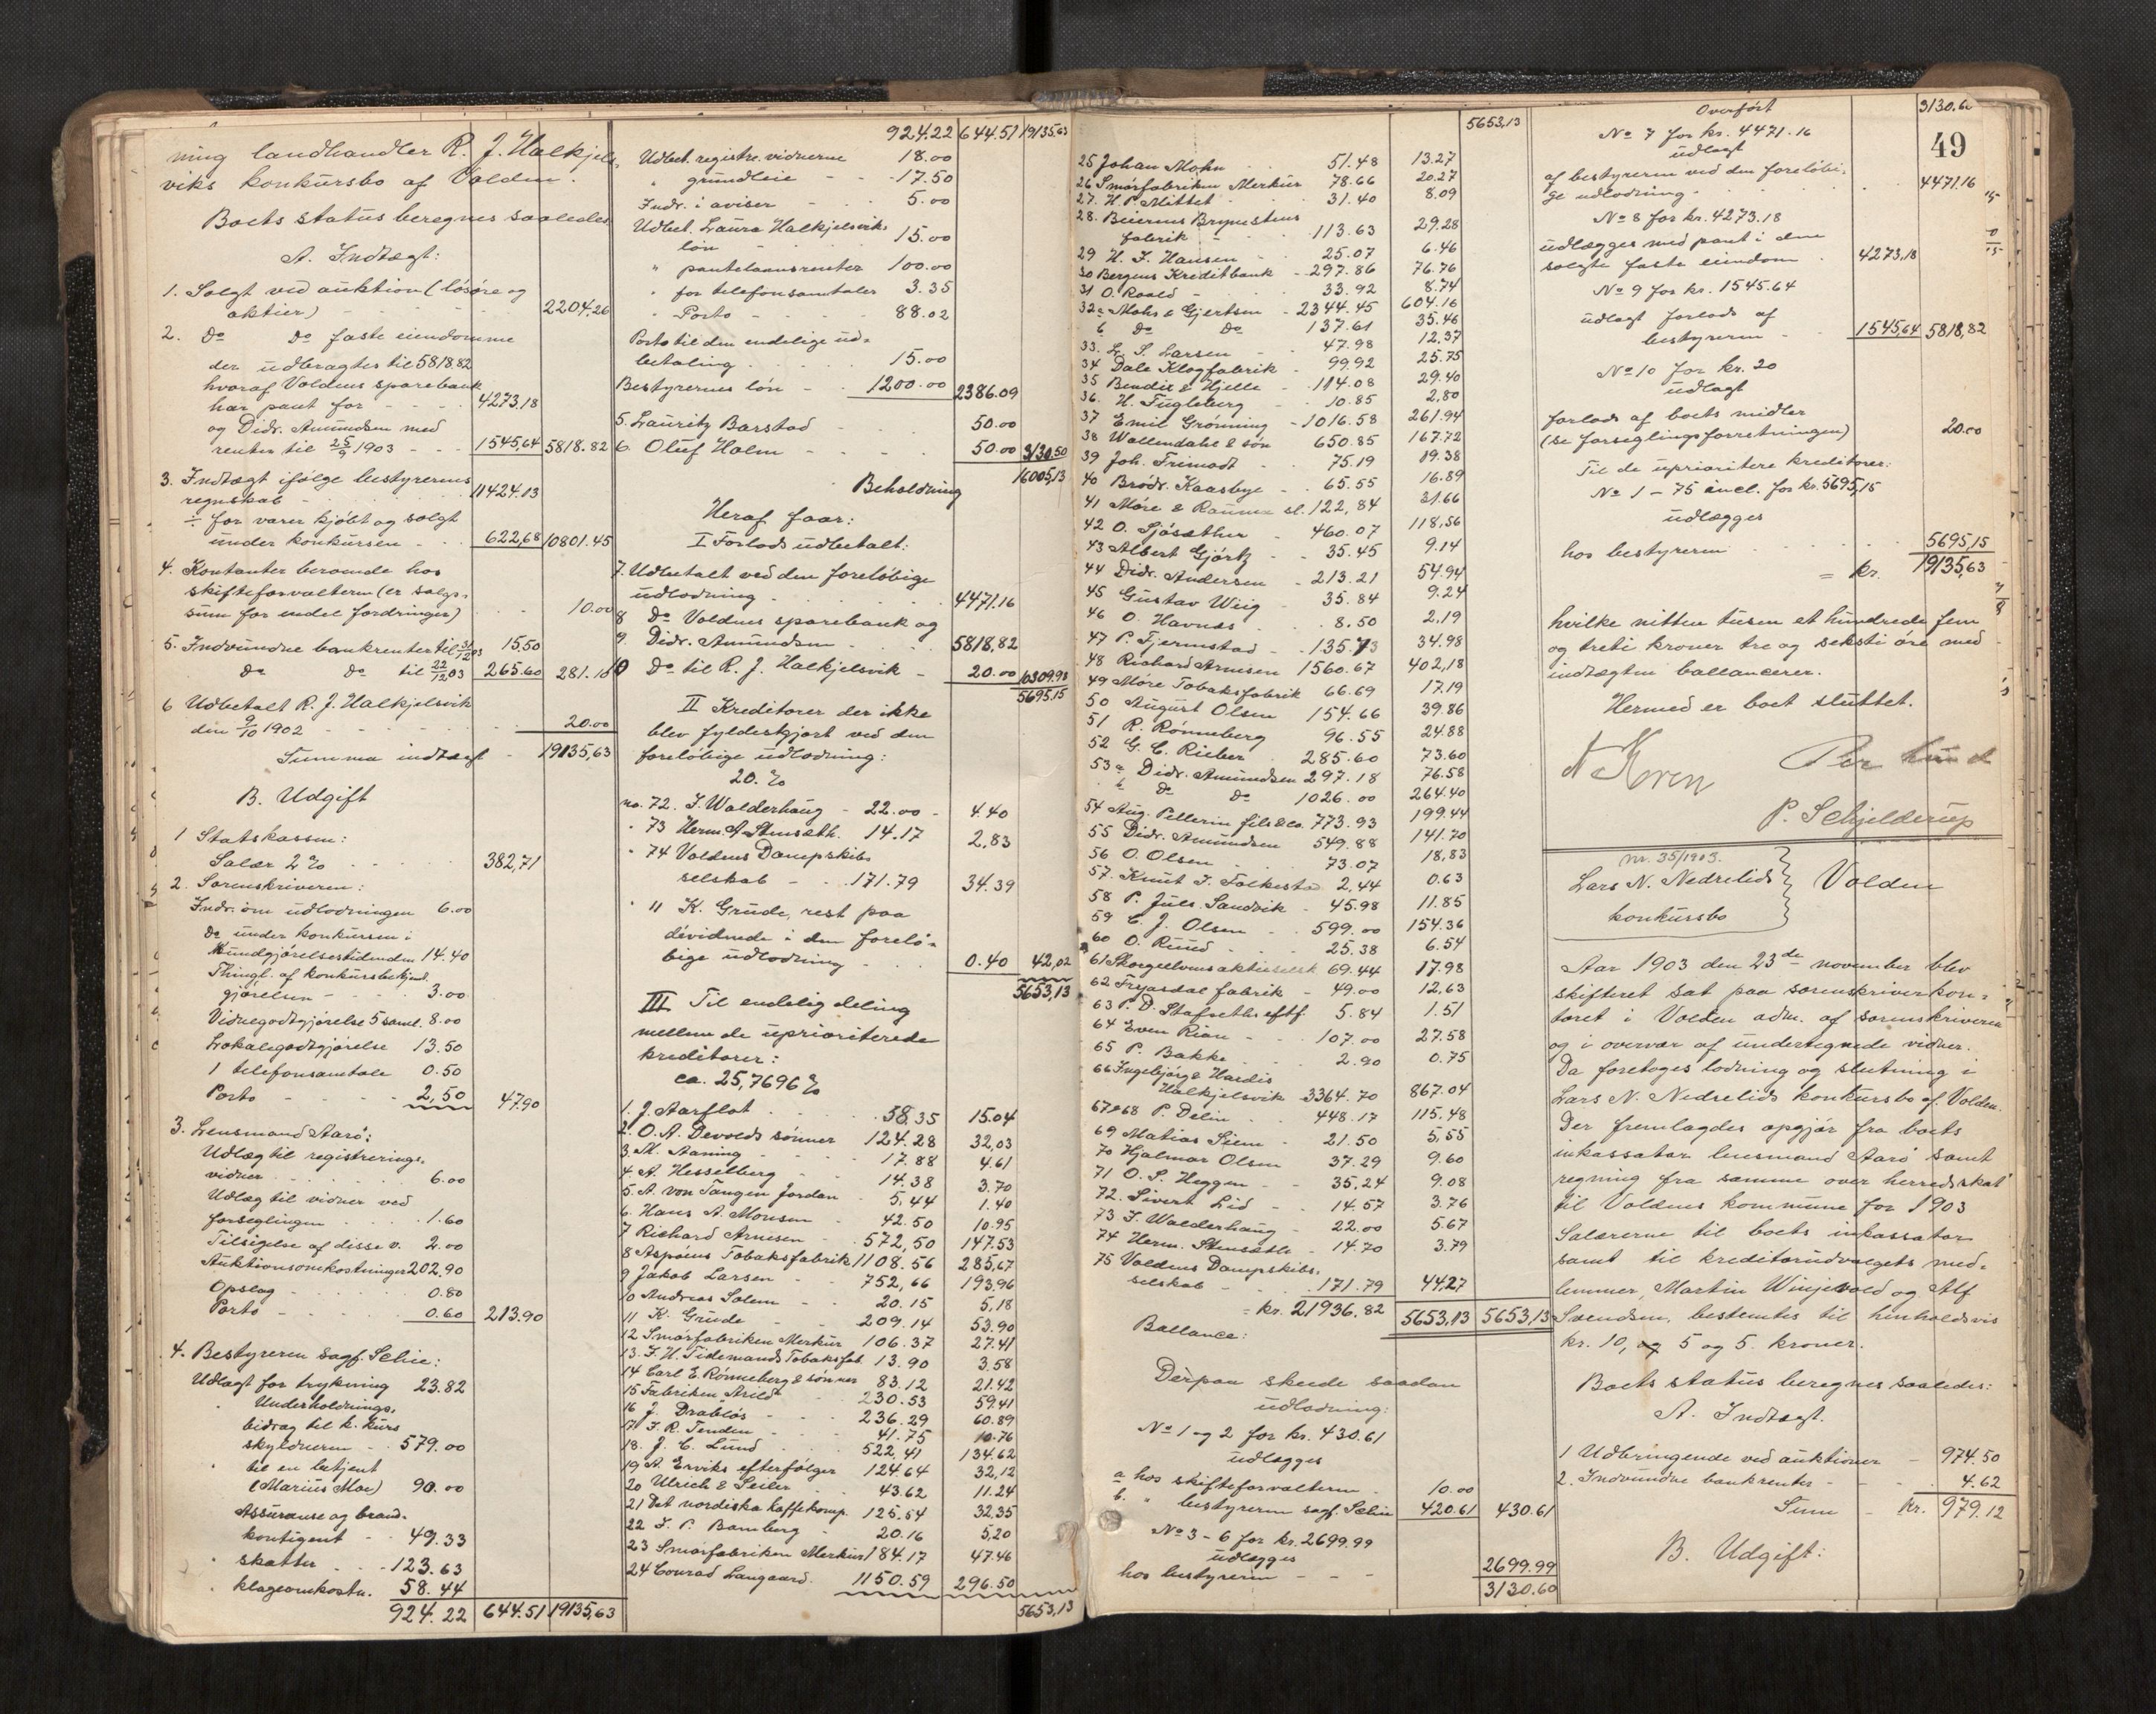 ning landhandler R. J. Halkjels-
viks konkursbo af Volden.
Boets status beregnes saaledes
A. Indtægt:
1. Solgt ved auktion (løsøre og
aktier) - - - 2204.26
2. Do Do faste eiendomme
der udbragtes til 5818.82
hvoraf Voldens sparebank
har pant for - - - 4273,18
og Didr. Amundsen med
renter til 25/9 1903 - - 1545,64 5818.82
3. Indtægt ifølge bestyrerens
regnskab - - 11424.13
÷ for varer kjøbt og solgt
under konkursen - - 622,68 10801.45
4. Kontanter beroende hos
skifteforvalteren (er salgs-
sum for endel fordringer) - - 10.00
5. Indvundne bankrenter til 31/12 03 15,50
do do til 22/12 03 265.60 281.10
6 Udbetalt R. J. Halkjelsvik
den 9/10 1902 - - - 20.00
Summa indtægt - 19135,63
B. Udgift
1 Statskassen:
Salær 2 % - - - 382,71
2. Sorenskriveren:
Indr. om udlodningen 6.00
Do under konkursen i
Kundgjørelsestidenden 14.40
Thingl. af konkursbekjendt-
gjørelsen - - 3.00
Vidnegodtgjørelse 5 saml. 8.00
Lokalegodtgjørelse 13.50
1 telefonsamtale 0.50
Porto - - - 2,50 47.90
3. Lensmand Aarø:
Udlæg til registrerings-
vidner - - - 6.00
Udlæg til vidner ved
forseglingen - - - 1.60
Tilsigelse af disse v. 2.00
Auktionsomkostninger 202.90
Opslag - - - 0.80
Porto - - - 0.60 213.90
4. Bestyreren sagf. Schie:
Udlagt for trykning 23.82
" Underholdnings-
bidrag til k. kurs
skyldneren - - 579.00
" til en betjent
(Marius Moe) 90.00
Assurance og brand-
kontigent - - 49.33
" skatter - - 123.63
" klageomkostn. 58.44
924.22 644.51 19135,63
924.22 644.51 19135,63
Udbet. registr. vidnerne 18.00
" grundleie - - 17.50
Indr. i aviser - - 5.00
Udbet. Laura Halkjelsviks
løn - - - 15.00
" pantelaansrenter 100.00
" for telefonsamtaler 3.35
" Porto - - - 88.02
Porto til den endelige ud-
betaling - - - 15.00
Bestyrerens løn - - 1200.00 2386.09
5. Lauritz Barstad - - - 50.00
6. Oluf Holm - - - 50.00 3130.50
Beholdning 16005,13
Heraf faar:
I Forlods udbetalt:
7. Udbetalt ved den foreløbige
udlodning - - - 4471.16
8 Do Voldens sparebank og
9. Didr. Amundsen - - - 5818,82
10 Do til R. J. Halkjelsvik - 20.00 10309.98
5695.15
II Kreditorer der ikke
blev fyldestgjort ved den
foreløbige udlodning:
20. %
no. 72. J. Walderhaug - 22.00 - 4.40
" 73 Herm. A. Stenseth. 14.17 2,83
" 74 Voldens Dampskibs-
selskab - - 171.79 34.39
" 11 K. Grude, rest paa
dividende i den forelø-
bige udlodning - - 0.40 42,02
5653,13
III Til endelig deling
mellem de uprioriterede
kreditorer:
ca. 25,7696 %
1. J. Aarflot - - - 58.35 15.04
2. O. A. Devolds sønner 124.28 32,03
3. M. Aaning - - 17.88 4.61
4 A. Hesselberg - 14.38 3.70
5. A. von Tangen Jordan 5.44 1.40
6. Hans A. Monsen - 42.50 10.95
7 Richard Arnesen - 572,50 147.53
8 Aspøens Tobaksfabrik 1108.56 285,67
9 Jakob Larsen - - 752,66 193.96
10 Andreas Solem - - 20.15 5,18
11 K. Grude - - 209.14 53.90
12 Smørfabriken Merkur 106.37 27.41
13. J. H. Tidemands Tobaksfab. 13.90 3.58
14 Carl E. Rønneberg & sønner 83.12 21.42
15 Fabriken Arild - 230.53 59.41
16 J. Drabløs - - 236.29 60.89
17 J. R. Tenden - - 41.75 10.76
18. J. C. Lund - - 522,41 134.62
19 A. Erviks efterfølger 124.64 32,12
20 Ulrich & Seiler - 43.62 11.24
21 Det nordiska kaffekomp. 125.54 32.35
22 J. P. Bamberg - 20.16 5,20
23 Smørfabriken Merkur 184.17 47.46
24 Conrad Langaard. 1150.59 296.50
5653,13
5653,13
25 Johan Mohn - 51.48 13.27
26 Smørfabriken Merkur 78.66 20.27
27. H. P. Mittet - - 31.40 8.09
28. Beierens Brynestens
fabrik - - 113.63 29.28
29 H. J. Hansen - 25.07 6.46
30 Bergens Kreditbank - 297.86 76.76
31 O. Roald - - 33.92 8.74
32 a Mohr & Gjertsen - 2344.45 604.16
b do do 137.61 35.46
33. L. S. Larsen - 47.98 12,37
34 Dale Klogfabrik - 99.92 25.75
35 Bendix & Hjelle - 114.08 29.40
36. H. Fugleberg - 10.85 2,80
37 Emil Grønning - 1016.58 261.94
38 Wallendahl & søn 650.85 167.72
39 Joh. Frimodt - 75.19 19.38
40 Brødr. Kaasbye - - 65.55 16.89
41 Møre & Rauma sl. 122,84 31.66
42 O. Sjåsæther - 460.07 118,56
43 Albert Gjørtz - - 35.45 9.14
44 Didr. Andersen - 213.21 54.94
45 Gustav Wiig - 35.84 9.24
46 O. Havnæs - - 8,50 2,19
47 P. Tjernstad - - 135.73 34.98
48 Richard Arnesen 1560.67 402,18
49 Møre Tobaksfabrik 66.69 17.19
50 August Olsen 154.66 39.86
51 R. Rønneberg 96.55 24.88
52 G. C. Rieber 285.60 73.60
53 a Didr. Amundsen 297.18 76.58
b do do 1026.00 264.40
54 Aug. Pellerin fils & co. 773.93 199.44
55 Didr. Amundsen 549.88 141.70
56 O. Olsen - - 73.07 18,83
57. Knut J. Folkestad 2,44 0.63
58 P. Juls. Sandvik - 45.98 11.85
59 C. J. Olsen - - 599.00 154.36
60 O. Ruud - - 25.38 6.54
61 Skorgeelvens aktieselsk 69.44 17.98
62 Frysdal fabrik - 49.00 12,63
63 P. D. Stafseths eftf. 5.84 1.51
64 Even Rian - - 107.00 27.58
65 P. Bakke - - 2.90 0.75
66 Ingebjørg & Hardis
Halkjelsvik 3364.70 867.04
67&68 P. Delin - - 448.17 115.48
69 Matias Siem - 21.50 5,55
70 Hjalmar Olsen 37.29 9.60
71 O. S. Heggen - - 35,24 9.08
72. Sivert Lid - - 14.57 3.76
73 J. Walderhaug - 22.00 5.67
74 Herm. Stenseth - 14.70 3.79
75 Voldens Dampskibs-
selskab - - 171.79 44.27
= kr. 21936.82 5653,13 5653,13
Ballance:
Derpaa skede saadan
udlodning:
No 1 og 2 for kr. 430.61
udlægges
a hos skifteforvalteren - 10.00
b. " bestyreren sagf. Schie 420.61 430.61
No 3 - 6 for kr. 2699.99
udlægges
hos bestyreren - - - 2699.99
3130.60
49
Overført 3130.60
No 7 for kr. 4471.16
udlagt
af bestyreren ved den foreløbi-
ge udlodning - - - 4471.16
No 8 for kr. 4273.18
udlægges med pant i den
solgte faste eiendom - 4273,18
No 9 for kr. 1545.64
udlagt forlods af
bestyreren - - 1545,64 5818,82
No 10 for kr. 20
udlagt
forlods af boets midler
(se forseglingsforretningen) 20.00
Til de uprioritere kreditorer:
No 1 - 75 incl. for kr. 5695,15
udlægges
hos bestyreren - - - 5695,15
= kr. 19135,63
hvilke nitten tusen et hundrede fem
og treti kroner tre og seksti øre med
indtægten ballancerer.
Hermed er boet sluttet.
P. Schjelderup
nr. 35/1903.
Lars N. Nedrelids } Volden
konkursbo
Aar 1903 den 23de november blev
skifteret sat paa sorenskriverkon-
toret i Volden adm. af sorenskriveren
og i overvær af undertegnede vidner.
Da foretoges lodning og slutning i
Lars N. Nedrelids konkursbo af Volden.
Der fremlagdes opgjør fra boets
inkassator lensmand Aarø samt
regning fra samme over herredsskat
til Voldens kommune for 1903
Salærerne til boets inkassator
samt til kreditorudvalgets med-
lemmer, Martin Winjevold og Alf
Svendsen, bestemtes til henholdsvis
kr. 10, og 5 og 5. kroner.
Boets status beregnes saaledes:
A. Indtægt.
1 Udbringende ved auktioner - 974.50
2. Indvundne bankrenter - - 4.62
Sum - kr. 979.12
B. Udgift: